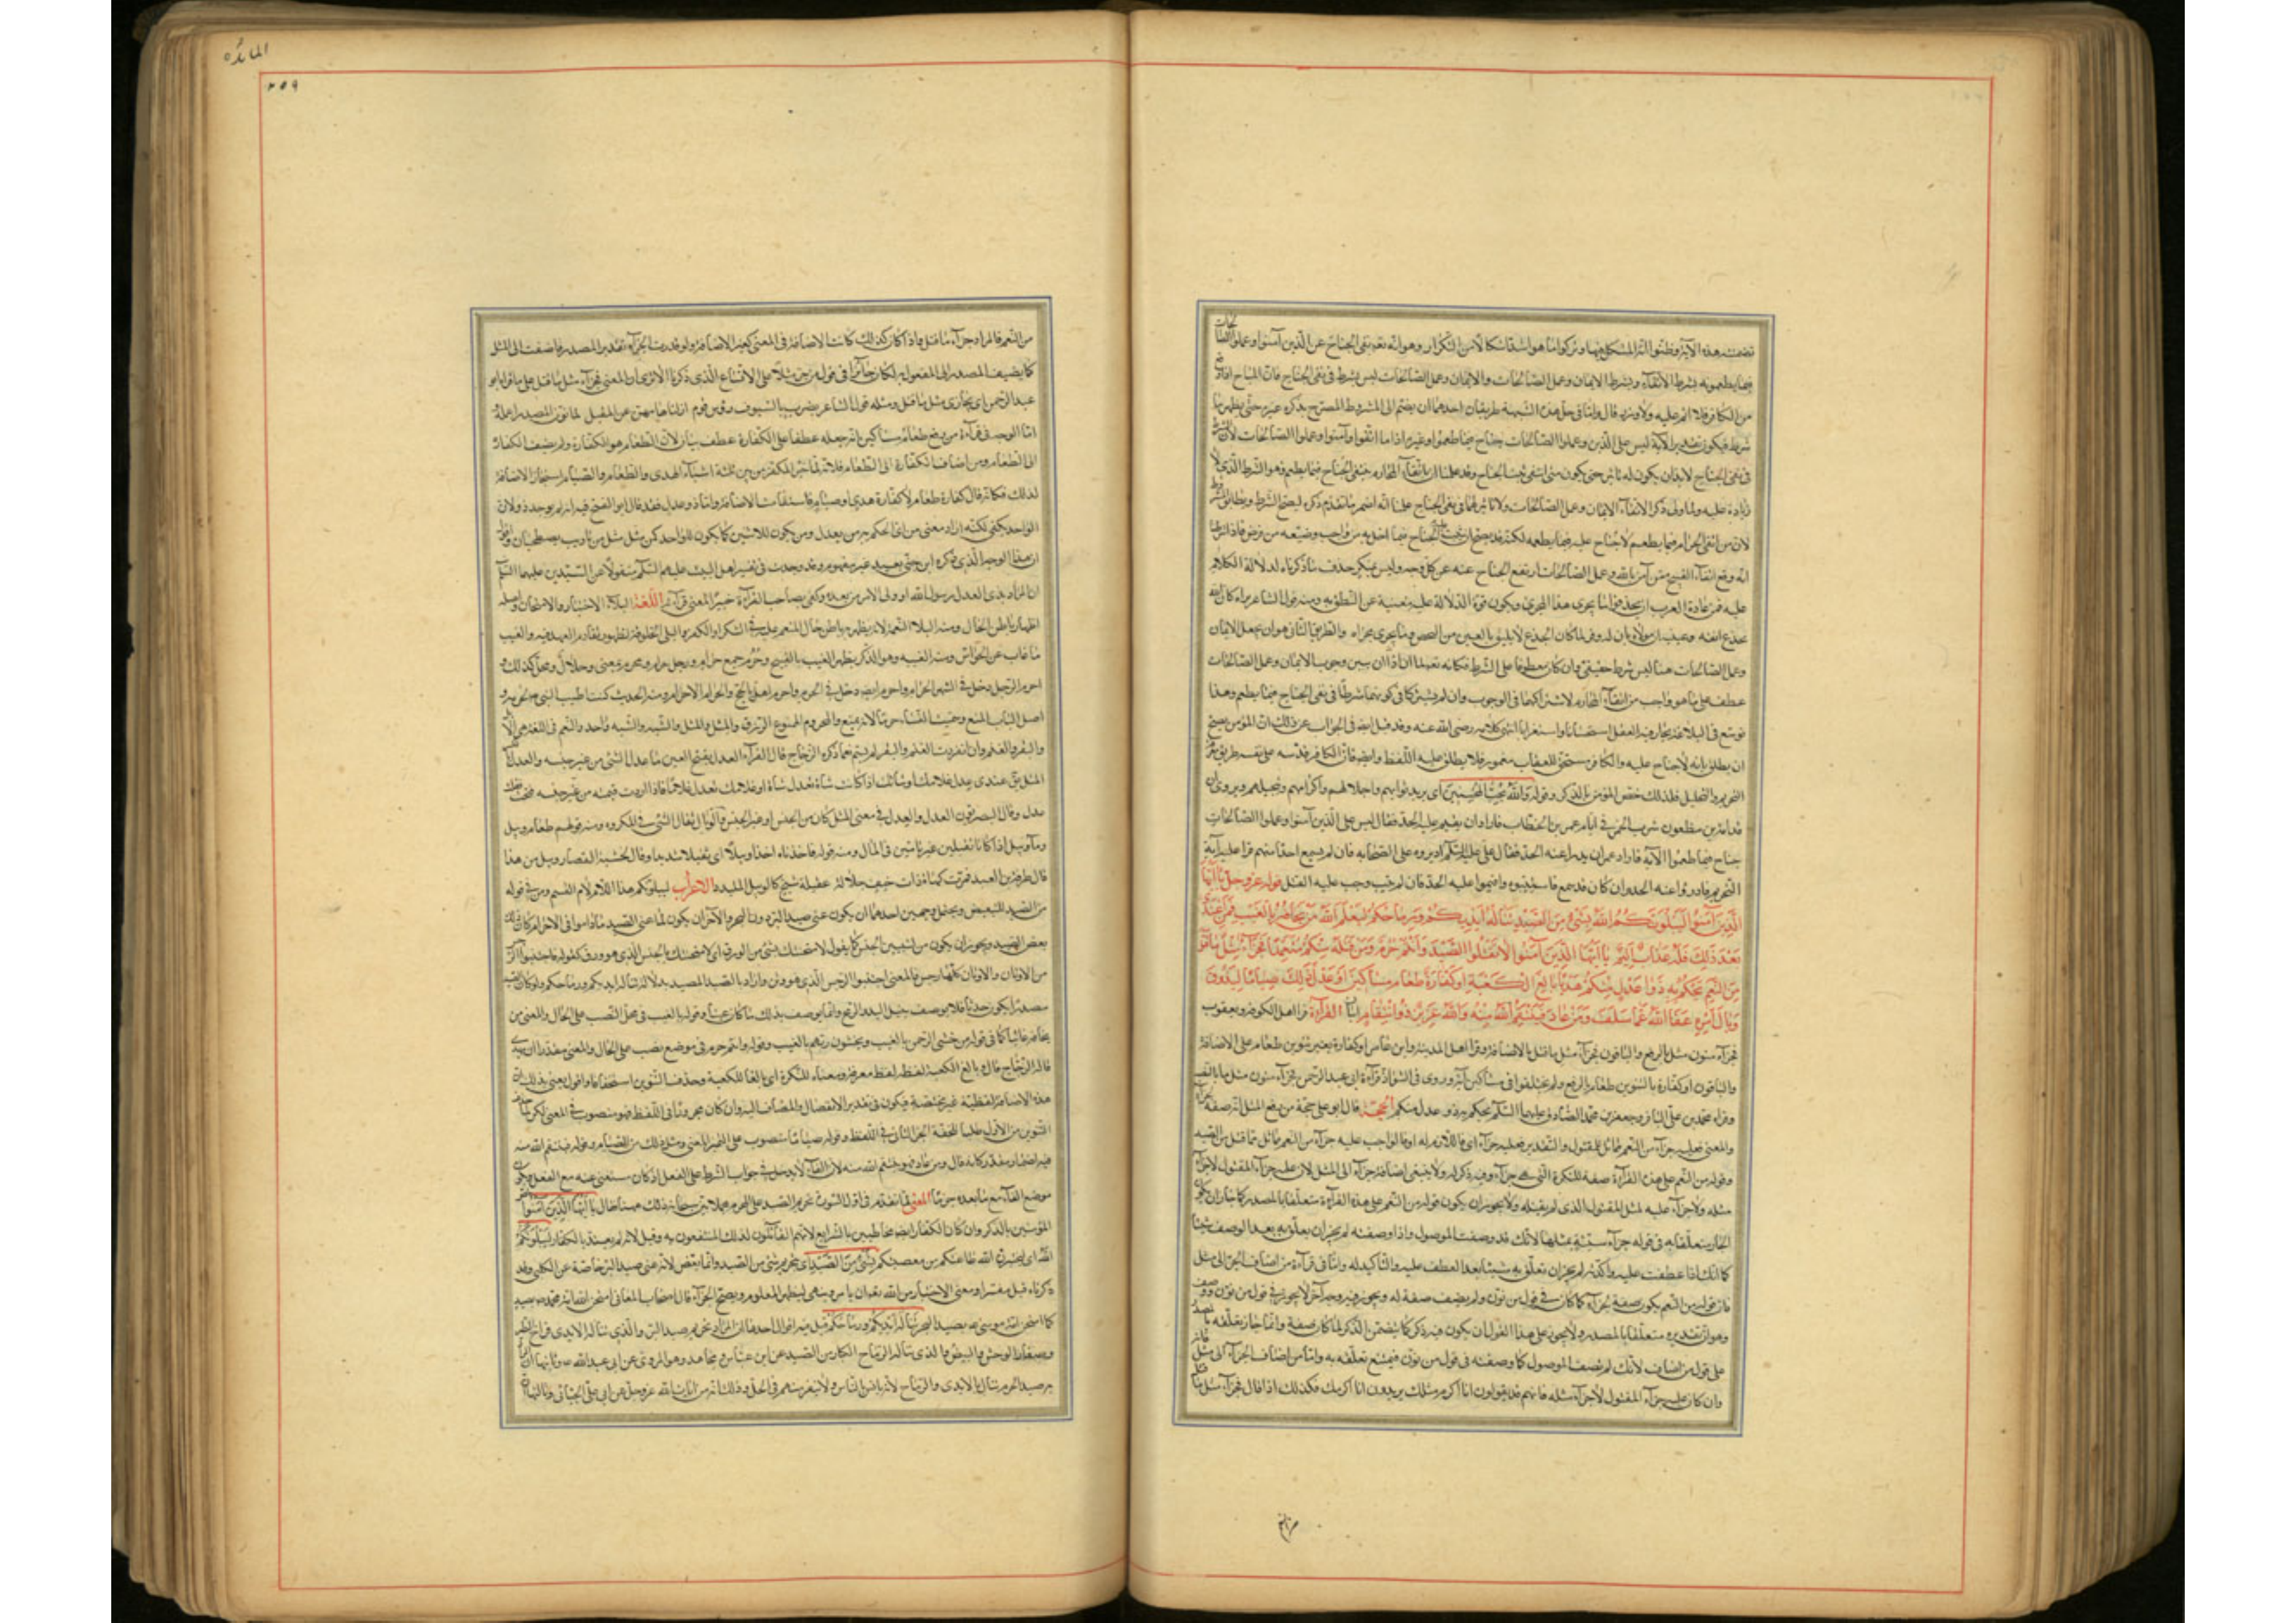 تضمنت هذه الآية وظنوا انه المشكل فيها وتركوا ما هو اشد اشكالا من التكرار وهو انه تعالى نفى الجناح عن الذين آمنوا وعملوا الصالحات
فيما يطعمونه بشرط الاتقاء وبشرط الايمان وعمل الصالحات والايمان وعمل الصالحات ليس بشرط في نفى الجناح فان المباح اذا وقع
من الكافر فلا اثم عليه ولا وزر قال ولنا في حل هذه الشبهة طريقان احدهما ان يضم الى المشروط المصرح بذكره غيره حتى يظهر تأثير ما
شرط فيكون تقدير الآية ليس على الذين وعملوا الصالحات جناح فيما طعموا وغيره اذا ما اتقوا وآمنوا وعملوا الصالحات لان الشرط
في نفى الجناح لابد ان يكون له تاثير حتى يكون متى انتفى ثبت الجناح وقد علمنا ان باتقاء المحارم ينتفى الجناح فيما يطعم فهو الشرط الذى لا
زيادة عليه ولما ولى ذكر الاتقاء الايمان وعمل الصالحات ولا تاثير لهما في نفى الجناح علمنا انه اضمر ما تقدم ذكره ليصح الشرط ويطابق المشروط
لان من اتقى الحرام فيما يطعم لا جناح عليه فيما يطعمه لكنه قد يصح ان يثبت عليه الجناح فيما اخل به من واجب وضيعه من فرض فاذا شرطنا
انه وقع اتقاء القبيح ممن آمن بالله وعمل الصالحات ارتفع الجناح عنه من كل وجه وليس بمنكر حذف ما ذكرناه لدلالة الكلام
عليه فمن عادة العرب ان يحذفوا ما يجرى هذا المجرى ويكون قوة الدلالة عليه مغنية عن النطق به ومنه قول الشاعر تراه كان الله
يجدع انفه وعينيه ان مولاه بان له وفر لما كان الجدع لا يليق بالعين
وعمل الصالحات هنا ليس بشرط حقيقى وان كان معطوفا على الشرط فكانه تعالى لما اراد ان يبين وجوب الايمان وعمل الصالحات
عطفه على ما هو واجب من اتقاء المحارم لاشتراكهما في الوجوب وان لم يشتركا في كونهما شرطا في نفى الجناح فيما يطعم وهذا
توسع في البلاغة يحار فيه العقل استحسانا واستغرابا انتهى كلامه رضى الله عنه وقد قيل ايضا في الجواب عن ذلك ان المؤمن يصح
ان يطلق بانه لا جناح عليه والكافر مستحق للعقاب مغمور فلا يطلق عليه اللفظ وايضا فان الكافر قد سد على نفسه طريق معرفة
التحريم والتحليل فلذلك خص المؤمن بالذكر وقوله والله يحب المحسنين اى يريد ثوابهم واجلالهم واكرامهم وتبجيلهم ويروى ان
قدامة بن مظعون شرب الخمر في ايام عمر بن الخطاب فاراد ان يقيم عليه الحد فقال ليس على الذين آمنوا وعملوا الصالحات
جناح فيما طعموا الآية فاراد عمر ان يدرا عنه الحد فقال على عليه السلام اديروه على الصحابة فان لم يسمع احدا منهم قرا عليه آية
التحريم فادرؤا عنه الحد وان كان قد سمع فاستتيبوه واقيموا عليه الحد فان لم يتب وجب عليه القتل قوله عز وجل يا ايها
الذين آمنوا ليبلونكم الله بشئ من الصيد تناله ايديكم ورماحكم ليعلم الله من يخافه بالغيب فمن اعتدى
بعد ذلك فله عذاب اليم يا ايها الذين آمنوا لا تقتلوا الصيد وانتم حرم ومن قتله منكم متعمدا فجزآء مثل ما قتل
من النعم يحكم به ذوا عدل منكم هديا بالغ الكعبة او كفارة طعام مساكين او عدل ذلك صياما ليذوق
وبال امره عفا الله عما سلف ومن عاد فينتقم الله منه والله عزيز ذو انتقام ايتان القرآءة قرا اهل الكوفة ويعقوب
فجزآء منون مثل بالرفع والباقون فجزآء مثل ما قتل بالاضافة وقرا اهل المدينة وابن عامر او كفارة بغير تنوين طعام على الاضافة
والباقون او كفارة بالتنوين طعام بالرفع ولم يختلفوا في مساكين انه جمع وروى في الشواذ قرآءة ابى عبد الرحمن فجزآء منون مثل ما بالنصب
وقرآءة محمد بن على الباقر وجعفر بن محمد الصادق عليهما السلم يحكم به ذو عدل منكم الحجة قال ابو على حجة من رفع المثل انه صفة للجزآء
والمعنى فعليه جزآء من النعم مماثل للمقتول والتقدير فعليه جزآء اى فاللازم له او فالواجب عليه جزآء من النعم مماثل ما قتل من الصيد
وقوله من النعم على هذه القرآءة صفة للنكرة التى هى جزآء وفيه ذكر له ولا ينبغى اضافة جزآء الى المثل لان عليه جزآء المقتول لا جزآء
مثله ولا جزآء عليه لمثل المقتول الذى لم يقتله ولا يجوز ان يكون قوله من النعم على هذه القرآءة متعلقا بالمصدر كما جاز ان يكون
الجار متعلقا به في قوله جزآء سيئة بمثلها لانك قد وصفت الموصول واذا وصفته لم يجز ان يعلق به بعد الوصف شيئا
كما انك اذا عطفت عليه واكدته لم يجز ان تعلق به شيئا بعد العطف عليه والتأكيد له واما في قرآءة من اضاف الجزآء الى مثل
فان قوله من النعم يكون صفة للجزآء كما كان في قول من نون ولم يضف صفة له ويجوز فيه وجه آخر لا يجوز في قول من نون ووصف
وهو ان تقديره متعلقا بالمصدر ولا يجوز على هذا القول ان يكون فيه ذكر كما تضمن الذكر لما كان صفة وانما جاز تعلقه بالمصدر
على قول من اضاف لانك لم تصف الموصول كما وصفته في قول من نون فيمتنع تعلقه به واما من اضاف الجزآء الى مثل فانه
وان كان عليه جزآء المقتول لا جزآء مثله فانهم قد يقولون انا اكرم مثلك يريدون انا اكرمك فكذلك اذا قال فجزآء مثل ما قتل
من النعم
المائدة
٢٥٩
من النعم فالمراد جزآء ما قتل واذا كان كذلك كانت الاضافة في المعنى كغير الاضافة ولو قدرت الجزآء تقدير المصدر فاضفته الى المثل
كما يضيف المصدر الى المفعول به لكان جائزا في قول من جر مثلا على الاتساع الذى ذكرنا الا ترى ان المعنى فجزآء مثل ما قتل
عبد الرحمن اى يجازى مثل ما قتل ومثله قول الشاعر بضرب بالسيوف رؤس قوم ازلنا هامهن عن المقيل لما نون المصدر اعمله
اما الوجه في قرآءة من رفع طعام مساكين انه جعله عطفا على الكفارة عطف بيان لان الطعام هو الكفارة ولم يضف الكفارة
الى الطعام ومن اضاف الكفارة الى الطعام فلانه لما خير المكفر بين ثلثة اشياء الهدى والطعام والصيام استجاز الاضافة
لذلك فكانه قال كفارة طعام لا كفارة هدى او صيام فاستقامت الاضافة واما ذو عدل فقد قال ابو الفتح فيه انه لم يوحد ذو لان
الواحد يكفى لكنه اراد معنى من اى الحكم به من يعدل ومن يكون للاثنين كما يكون للواحد كمن مثل من ياذئب يصطحبان واقول
ان هذا الوجه الذى ذكره ابن جنى بعيد غير مفهوم وقد وجدت في تفسير اهل البيت عليهم السلم منقولا عن السيدين عليهما السلم
ان المراد بذى العدل رسول الله او ولى الامر من بعده وكفى بصاحب القرآءة خبيرا بمعنى قرآءته اللغة البلاء الاختبار والامتحان واصله
اظهار باطن الحال ومنه البلاء النعمة لانه يظهر به باطن حال المنعم عليه في الشكر او الكفر والبلى الخلوقة لظهور تقادم العهد فيه والغيب
ما غاب عن الحواس ومنه الغيبة وهو الذكر بظهر الغيب بالقبيح وحرم جمع حرام ورجل حرام ومحرم بمعنى وحلال ومحل كذلك و
احرم الرجل دخل في الشهر الحرام واحرم ايضا دخل في الحرم واحرم اهل بالحج والحرم الاحرام ومنه الحديث كنت اطيب النبى لحرمه و
اصل الباب المنع وسميت النساء حرما لانه يمنع والمحروم الممنوع الرزق والمثل والمثل والشبه والشبه واحد والنعم في اللغة هى الابل
والبقر والغنم وان انفردت الغنم والبقر لم يسم نعما ذكره الزجاج قال الفرآء العدل بفتح العين ما عدل الشئ من غير جنسه والعدل بالكسر
المثل يق عندى عدل غلامك وشاتك اذا كانت شاة تعدل شاة او غلامك تعدل غلاما فاذا اردت قيمته من غير جنسه فتحت فقلت
عدل وقال البصريون العدل والعدل في معنى المثل كان من الجنس او غير الجنس والوبال ثقل الشئ في المكروه ومنه قولهم طعام وبيل
ومآء وبيل اذا كانا ثقيلين غير نامين في المال ومنه قوله فاخذناه اخذا وبيلا اى ثقيلا شديدا ويقال لخشبة القصار وبيل من هذا
قال طرفة بن العبد فمرت كهاة ذات خيف جلالة عقيلة شيخ كالوبيل يلندد الاعراب ليبلونكم هذا اللام لام القسم ومن في قوله
من الصيد للتبعيض ويحتمل وجهين احدهما ان يكون عنى صيد البر دون البحر والآخر ان يكون لما عنى الصيد ما داموا في الاحرام كان ذلك
بعض الصيد ويجوز ان يكون من لتبيين الجنس كما يقول لامتحننك بشئ من الورق اى لامتحننك بالجنس الذى هو ورق كقوله فاجتنبوا الرجس
من الاوثان والاوثان كلها رجس فالمعنى اجتنبوا الرجس الذى هو وثن واراد بالصيد المصيد بدلالة تناله ايديكم ورماحكم ولو كان الصيد
مصدرا يكون حدثا فلا يوصف بنيل اليد والرمح وانما يوصف بذلك ما كان عينا وقوله بالغيب في محل النصب على الحال والمعنى من
يخافه غائبا كما في قوله من خشى الرحمن بالغيب ويخشون ربهم بالغيب وقوله وانتم حرم في موضع نصب على الحال والمعنى
قاله الزجاج قال وبالغ الكعبة لفظه لفظ معرفة ومعناه النكرة اى بالغا للكعبة وحذف التنوين استخفافا واقول يعنى بذلك ان
هذه الاضافة لفظية غير محضة فيكون في تقدير الانفصال والمضاف اليه وان كان مجرورا في اللفظ فهو منصوب في المعنى لكن لما حذف
التنوين من الاول طلبا للخفة انجر الثانى في اللفظ وقوله صياما منصوب على التمييز والمعنى ومثل ذلك من الصيام وقوله فينتقم الله منه
فيه اضمار مقدر كانه قال ومن عاد فهو ينتقم الله منه لان الفآء لا يدخل في جواب الشرط على الفعل اذ كان مستغنى عنه مع الفعل ويكون
موضع الفآء مع ما بعده جزما المعنى لما تقدم في اول السورة تحريم الصيد على المحرم مجملا بين سبحانه ذلك هنا فقال يا ايها الذين آمنوا خص
المؤمنين بالذكر وان كان الكفار ايضا مخاطبين بالشرايع لانهم القائلون لذلك المنتفعون به وقيل لانه لم يعتد بالكفار ليبلونكم
الله اى ليختبرن الله طاعتكم من معصيتكم بشئ من الصيد اى بتحريم شئ من الصيد وانما بعض لانه عنى صيد البر خاصة عن الكلبى وقد
ذكرناه قبل مفسرا ومعنى الاختبار من الله تعالى ان يامر وينهى ليظهر المعلوم ويصح الجزآء قال اصحاب المعانى امتحن الله امة محمد ص بصيد
كما امتحن امة موسى بصيد البحر تناله ايديكم ورماحكم قيل فيه اقوال احدها ان المراد تحريم صيد البر والذى تناله الايدى فراخ الطير
وصغار الوحش والبيض والذى تناله الرماح الكبار من الصيد عن ابن عباس ومجاهد وهو المروى عن ابى عبد الله وثانيها ان المراد
به صيد الحرم ينال بالايدى والرماح لانه يانس بالناس ولا ينفر منهم في الحل وذلك آية من آيات الله عز وجل عن ابى على الجبائى وثالثها ان